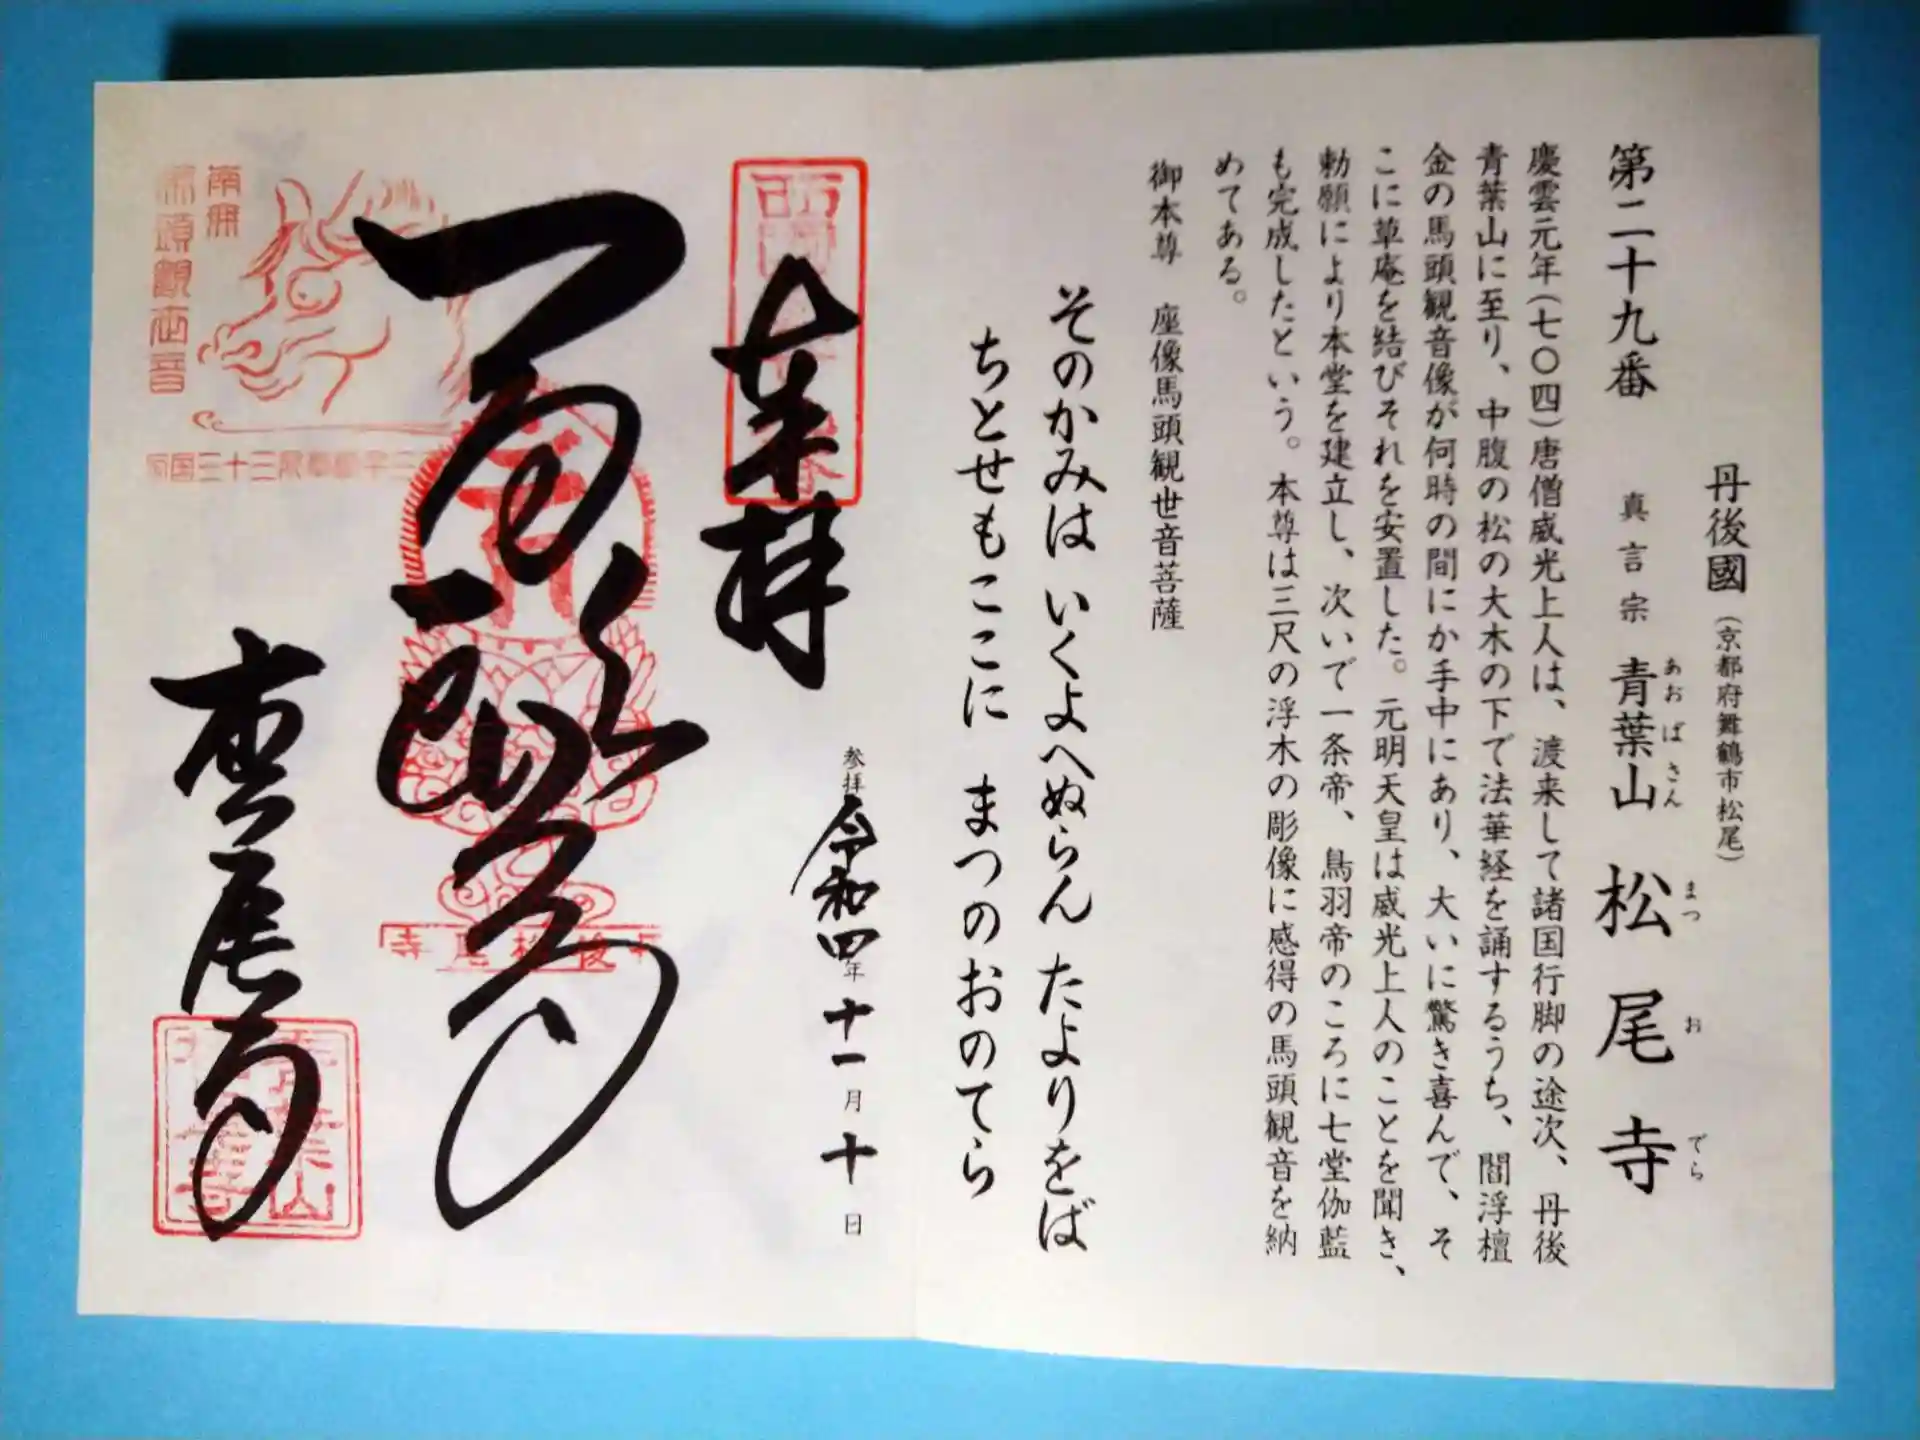 丹後國(京都府舞鶴市松尾)
第二十九番 真言宗 青葉山 松尾寺
あおばさん まつ お でら
慶雲元年(七〇四)唐僧威光上人は、渡来して諸国行脚の途次、丹後
青葉山に至り、中腹の松の大木の下で法華経を誦するうち、閻浮檀
金の馬頭観音像が何時の間にか手中にあり、大いに驚き喜んで、そ
こに草庵を結びそれを安置した。元明天皇は威光上人のことを聞き、
勅願により本堂を建立し、次いで一条帝、鳥羽帝のころに七堂伽藍
も完成したという。本尊は三尺の浮木の彫像に感得の馬頭観音を納
めてある。
御本尊 座像馬頭観世音菩薩
そのかみは いくよへぬらん たよりをば
ちとせもここに まつのおのてら
奉拝
参拝 令和四年十一月十日
松尾寺
馬頭観世音
青葉山